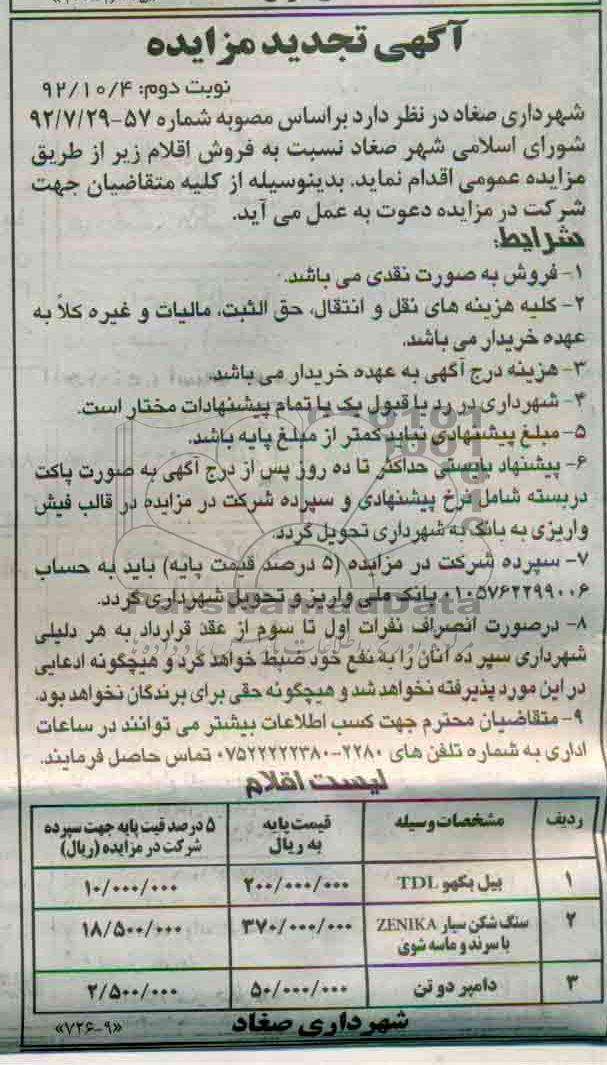 آگهی تجدید مزایده
نوبت دوم: ۹۲/۱۰/۴
شهرداری صغاد در نظر دارد براساس مصوبه شماره ۵۷-۹۲/۷/۲۹
شورای اسلامی شهر صغاد نسبت به فروش اقلام زیر از طریق
مزایده عمومی اقدام نماید. بدینوسیله از کلیه متقاضیان جهت
شرکت در مزایده دعوت به عمل می آید.
شرایط:
۱- فروش به صورت نقدی می باشد.
۲- کلیه هزینه های نقل و انتقال، حق الثبت، مالیات و غیره کلاً به
عهده خریدار می باشد.
۳- هزینه درج آگهی به عهده خریدار می باشد.
۴- شهرداری در رد یا قبول یک یا تمام پیشنهادات مختار است.
۵- مبلغ پیشنهادی نباید کمتر از مبلغ پایه باشد.
۶- پیشنهاد بایستی حداکثر تا ده روز پس از درج آگهی به صورت پاکت
دربسته شامل نرخ پیشنهادی و سپرده شرکت در مزایده در قالب فیش
واریزی به بانک به شهرداری تحویل گردد.
۷- سپرده شرکت در مزایده (۵ درصد قیمت پایه) باید به حساب
۰۱۰۵۷۶۲۲۹۹۰۰۶ بانک ملی واریز و تحویل شهرداری گردد.
۸- درصورت انصراف نفرات اول تا سوم از عقد قرارداد به هر دلیلی
شهرداری سپر ده آنان را به نفع خود ضبط خواهد کرد و هیچگونه ادعایی
در این مورد پذیرفته نخواهد شد و هیچگونه حقی برای برندگان نخواهد بود.
۹- متقاضیان محترم جهت کسب اطلاعات بیشتر می توانند در ساعات
اداری به شماره تلفن های ۲۲۸۰-۰۷۵۲۲۲۲۲۳۸۰ تماس حاصل فرمایند.
لیست اقلام
ردیف مشخصات وسیله قیمت پایه به ریال ۵ درصد قیت پایه جهت سپرده شرکت در مزایده (ریال)
۱ بیل بکهو TDL ۲۰۰/۰۰۰/۰۰۰ ۱۰/۰۰۰/۰۰۰
۲ سنگ شکن سیار ZENIKA با سرند و ماسه شوی ۳۷۰/۰۰۰/۰۰۰ ۱۸/۵۰۰/۰۰۰
۳ دامپر دو تن ۵۰/۰۰۰/۰۰۰ ۲/۵۰۰/۰۰۰
شهرداری صغاد
«۷۲۶-۹»
ParsNamadData